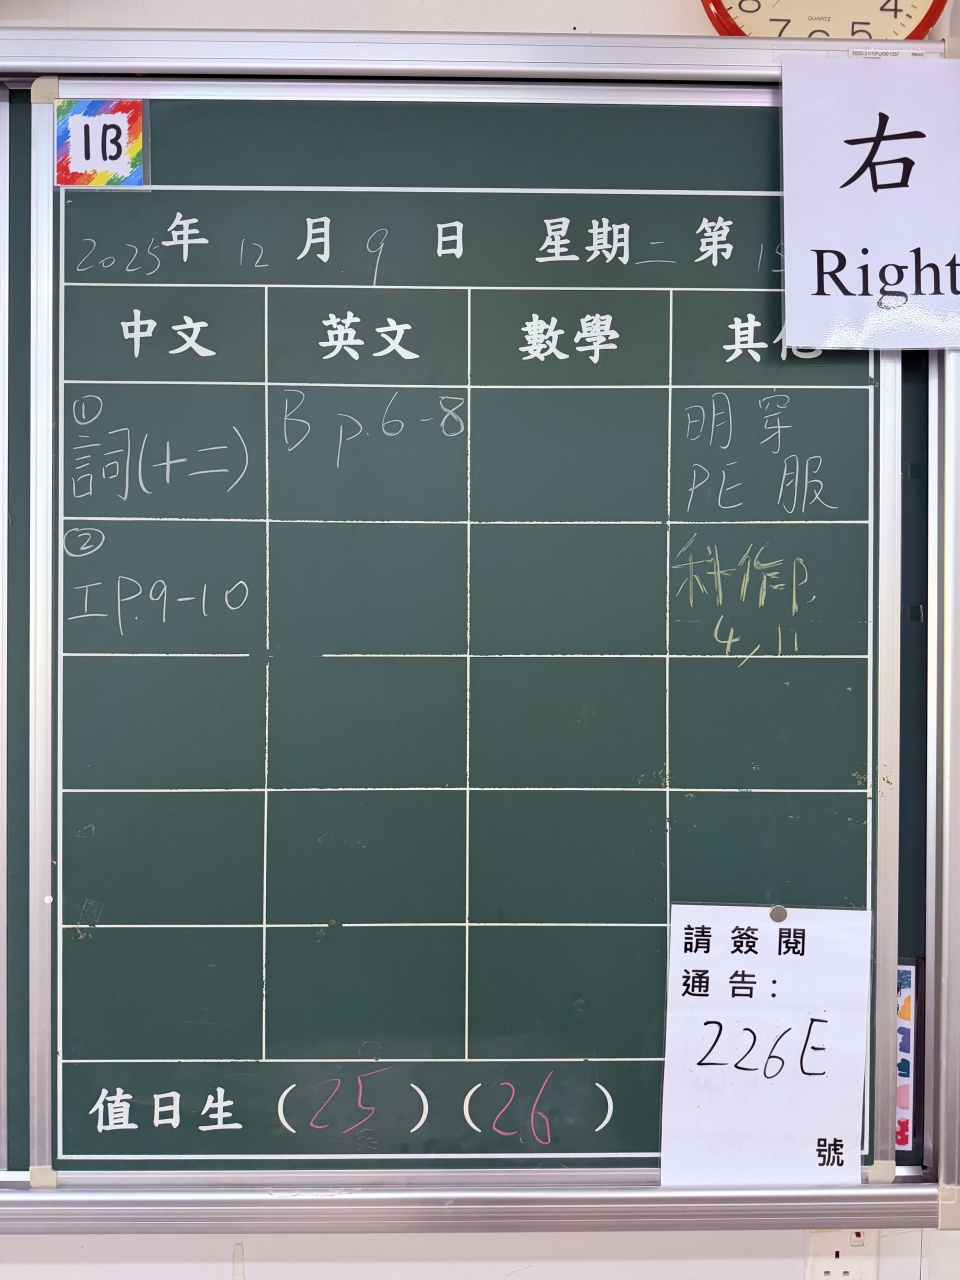 8 7 6 5 4
QUARTZ
1B
右
Right
2025年 12月 9日 星期二 第 15
中文 英文 數學 其他
① 詞(十二)
B p.6-8
明 穿
PE 服
② 工 P.9-10
科作 p.
4, 11
請簽閱
通告:
226E
號
值日生 (25) (26)